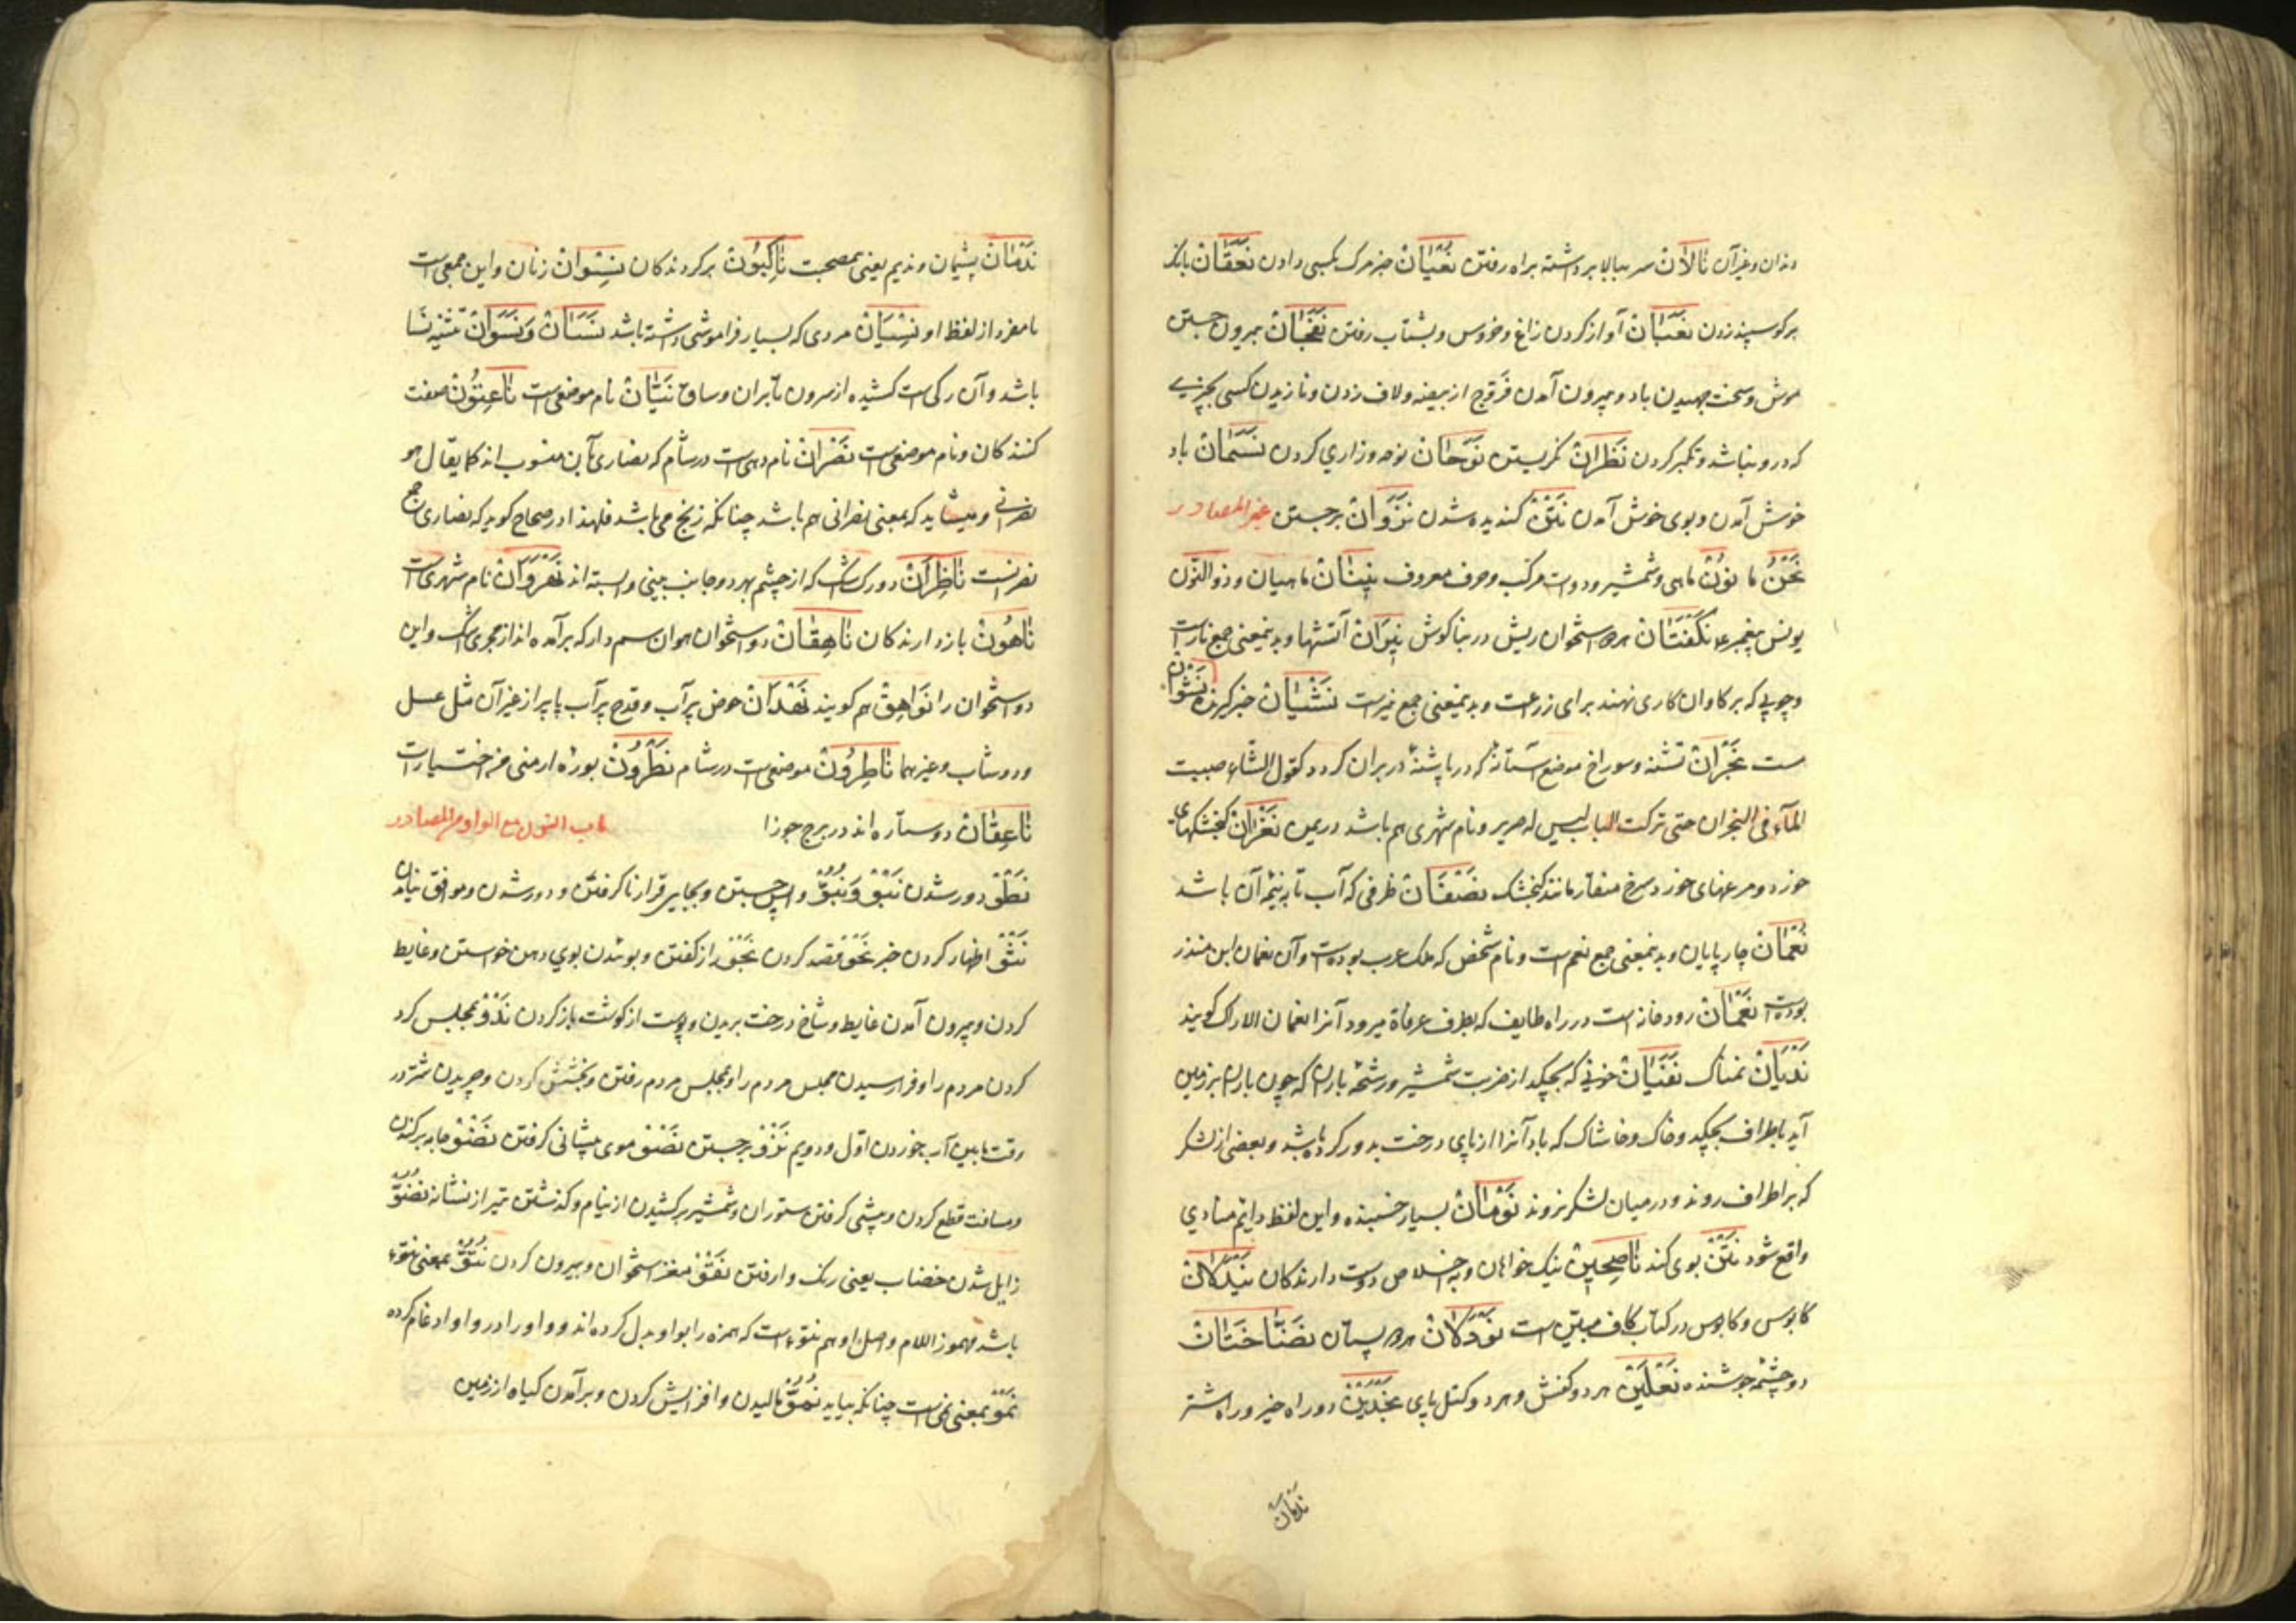 دندان و غیر آن نَالَانْ سر ببالا برداشته براه رفتن نَعَیَانْ خبر مرک بکسی دادن نَعَقَانْ بانک
بر کوسپند زدن نَعَبَانْ آواز کردن زاغ و خروس و بشتاب رفتن نَفَجَانْ بیرون جستن
موش و سخت جهیدن باد و بیرون آمدن فَرّوج از بیضه و لاف زدن و نازیدن کسی بچیزی
که درو نباشد و تکبر کردن نَظَرَانْ نکریستن نَوَحَانْ نوحه و زاری کردن نَسَمَانْ باد
خوش آمدن و بوی خوش آمدن نَتَنْ کندیده شدن نَزَوَانْ برجستن غیر المصادر
نَحْنُ ما نُونْ ماهی و شمشیر و دوات مرکب و حرف معروف نِینَانْ ماهیان و ذو النون
یونس پیغمبر ع نَکَفَتَانْ هر دو استخوان ریش در بناکوش نِیرَانْ آتشها و بدینمعنی جمع نارست
و چوبی که بر کاوان کاری نهند برای زراعت و بدینمعنی جمع نیرست نَشْیَانْ خبر کیرنده نَشْوَانْ
ست نَجْرَانْ تشنه و سوراخ موضع آستانه که در پاشنهٔ در بران کردد کقول الشاعر صببت
المآء فی النجران حتی ترکت الباب لیس له صریر و نام شهری هم باشد در یمن نِغْرَانْ کنجشکهای
خورد و مرغهای خورد سرخ منقار مانند کنجشک نَصَفَانْ ظرفی که آب تا به نیمهٔ آن باشد
نُعْمَانْ چارپایان و بدینمعنی جمع نعم است و نام شخصی که ملک عرب بوده است و آن نعمان ابن منذر
بوده است نَعْمَانْ رودخانه است در راه طایف که بطرف عرفاة میرود آنرا نعمان الاراک کویند
نَدْیَانْ نمناک نَفَیَانْ خونی که بچکد از ضربت شمشیر و رشحهٔ باران که چون باران بر زمین
آید باطراف بچکد و خاک و خاشاک که باد آنرا از پای درخت بدور کرده باشد و بعضی از لشکر
که بر اطراف روند و در میان لشکر نروند نَوْمَانْ بسیار خسبنده و این لفظ دایم منادی
واقع شود نَتِنْ بوی کند نَاصِحِینْ نیک خواهان و به اخلاص دوست دارندکان نَیْدَلَانْ
کابوس و کابوس در کتاب کاف مبیّن است نَوْدَلَانْ هر دو پستان نَضَّاخَتَانْ
دو چشمه جوشنده نَعْلَیْنْ هر دو کفش و هر دو کتل پای نَجْدَیْنْ دو راه خیر و راه شتر
ندمان
نَدْمَانْ پشیمان و ندیم یعنی همصحبت نَاکِبُونْ برکردندکان نِسْوَانْ زنان و این جمعی است
نا مفرد از لفظ او نَسْیَانْ مردی که بسیار فراموشی داشته باشد نَسَیَانْ وَنَسَوَانْ تثنیه نسا
باشد و آن رکی است کشیده از سرون تا بران و ساق نَتَیَانْ نام موضعی است نَاعِتُونْ صفت
کنندکان و نام موضعی است نَصْرَانْ نام دهی است در شام که نصاری بآن منسوب اند کما یقال هو
نصرانی و میشاید که بمعنی نصرانی هم باشد چنانکه زنج می باشد فلهذا در صحاح کوید که نصاری جمع
نصرانست نَاظِرَانْ دو رک است که از چشم بهر دو جانب بینی وابسته اند نَهْرَوَانْ نام شهری است
نَاهُونْ باز دارندکان نَاهِقَانْ دو استخوان حیوان سم دار که برآمده اند از مجری اشک و این
دو استخوان را نَوَاهِقْ هم کویند نَهْدَانْ حوض پر آب و قدح پر آب یا پر از غیر آن مثل عسل
و دوشاب و غیرهما نَاطِرُونْ موضعی است در شام نَطْرُونْ بورهٔ ارمنی من اختیارات
نَاعِقَانْ دو ستاره اند در برج جوزا باب النون مع الواو من المصادر
نَطْوْ دور شدن نَبْوْ وَنُبُوّْ واپس جستن و بجایی قرار ناکرفتن و دور شدن و موافق نیامدن
نَثْوْ اظهار کردن خبر نَحْوْ قصد کردن نَجْوْ راز کفتن و بوئیدن بوی دهن خواستن و غایط
کردن و بیرون آمدن غایط و شاخ درخت بریدن و پوست از کوشت باز کردن نَدْوْ بمجلس کرد
کردن مردم را و فرا رسیدن مجلس مردم را و بمجلس مردم رفتن و بخشش کردن و چریدن شتر در
وقت مابین آب خوردن اوّل و دویم نَزْوْ برجستن نَصْوْ موی پیشانی کرفتن نَضْوْ جامه برکندن
و مسافت قطع کردن و پیشی کرفتن ستوران و شمشیر برکشیدن از نیام و کذشتن تیر از نشانه نُضُوّْ
زایل شدن خضاب یعنی رنک وا رفتن نَقْوْ مغز استخوان بیرون کردن نُتُوّْ بمعنی نتوء
باشد مهموز اللام و اصل او هم نتوء است که همزه را بواو بدل کرده اند و واو را در واو ادغام کرده
نَمْوْ بمعنی نمی است چنانکه بیاید نُمُوّْ بالیدن و افزایش کردن و برآمدن کیاه از زمین